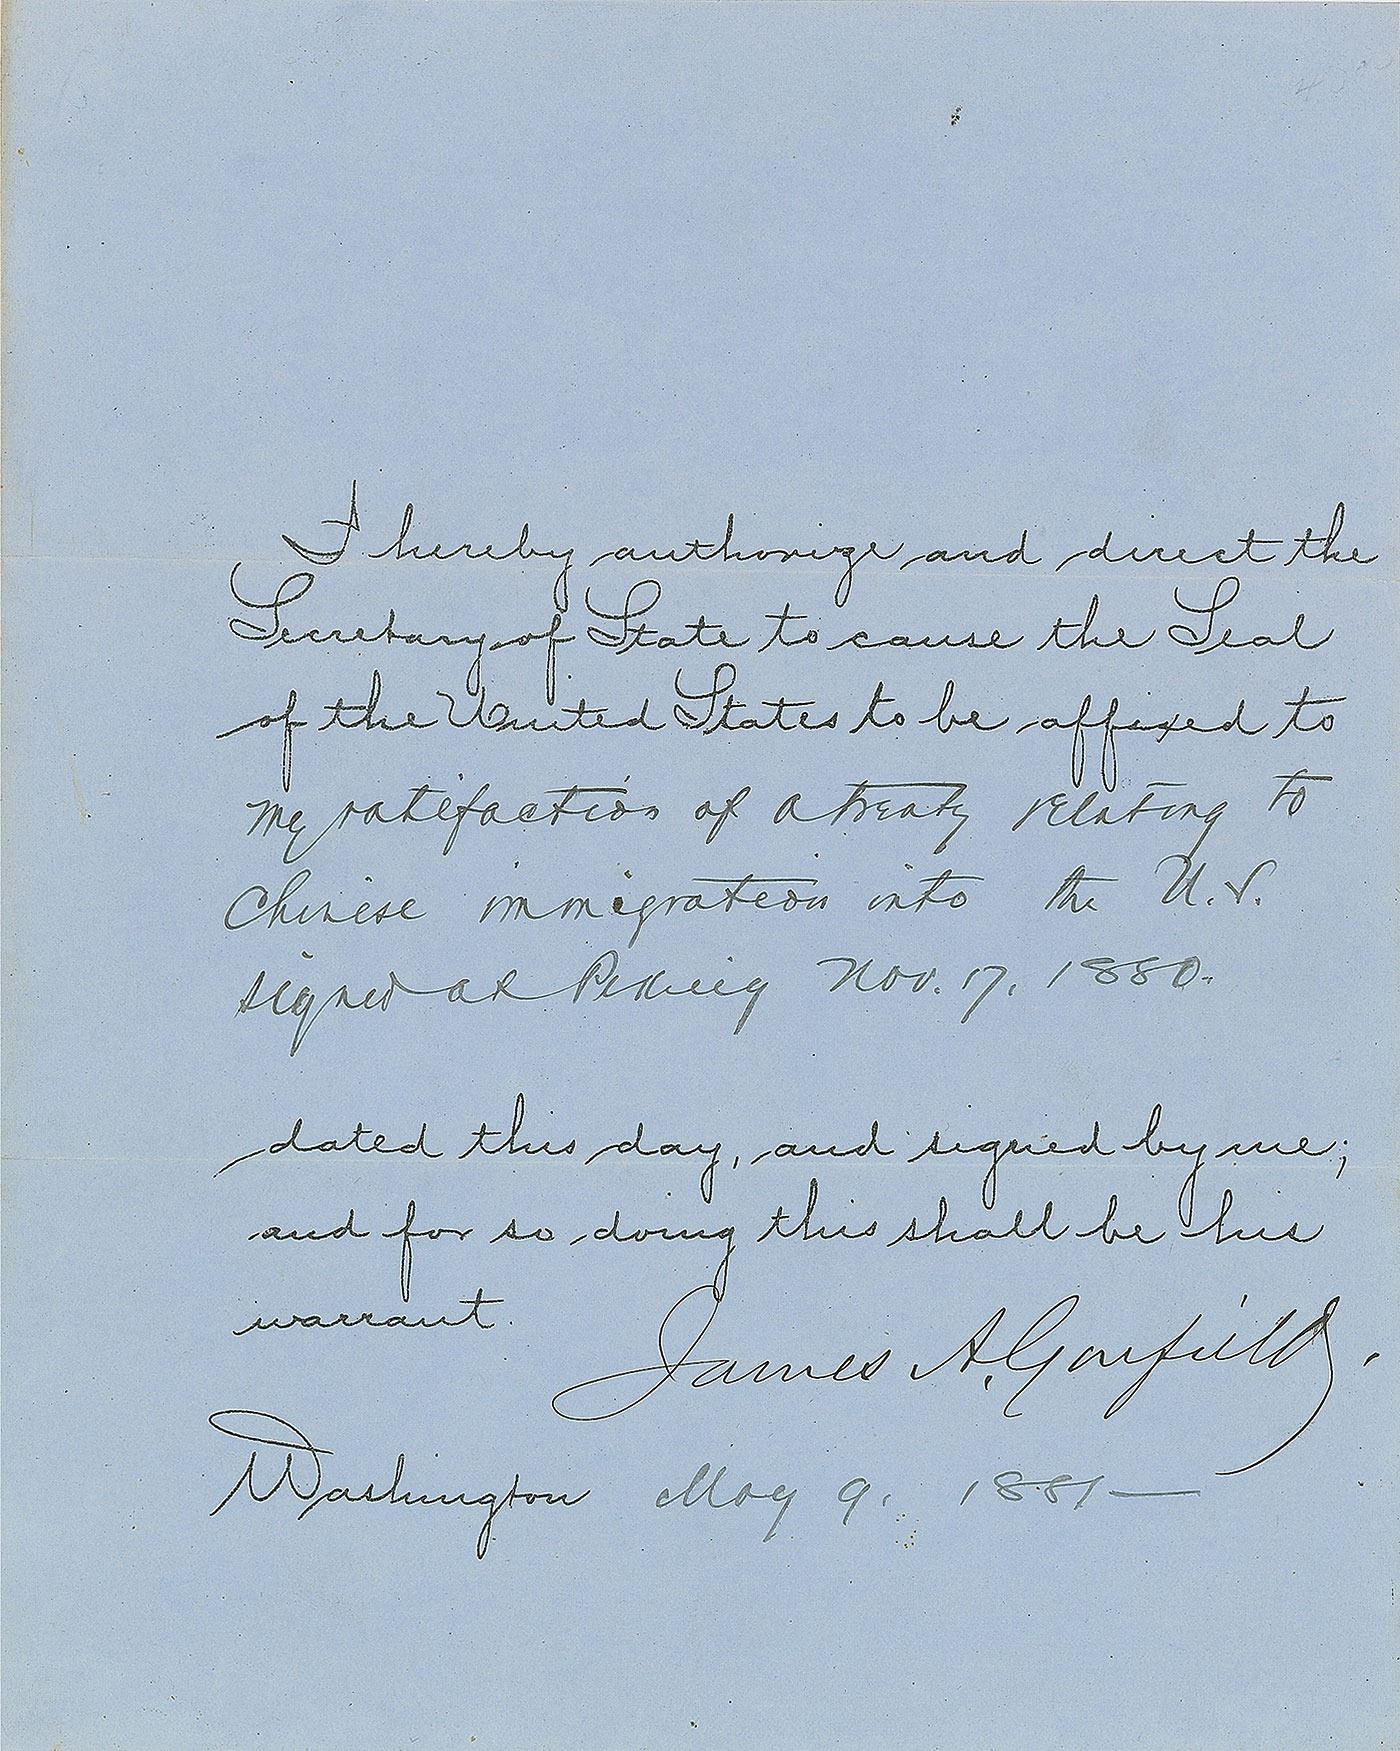 I hereby authorize and direct the
Secretary of State to cause the Seal
of the United States to be affixed to
my ratifaction of a treaty relating to
Chinese immigration into the U.S.
signed at Peking Nov. 17, 1880.
dated this day, and signed by me;
and for so doing this shall be his
warrant.
James A. Garfield.
Washington May 9, 1881—